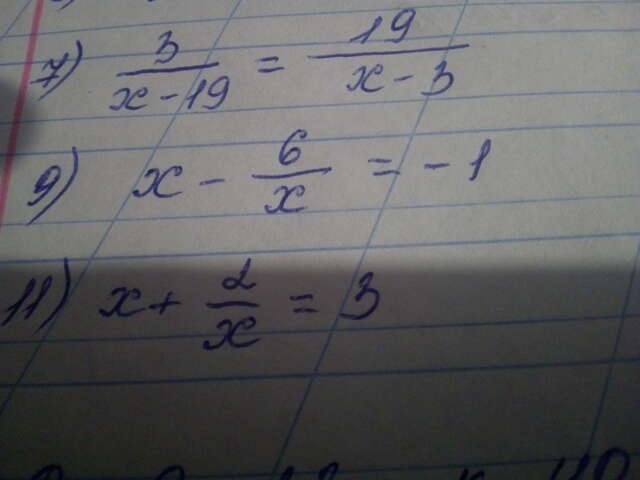 7) 3/(x-19) = 19/(x-3)
9) x - 6/x = -1
11) x + 2/x = 3